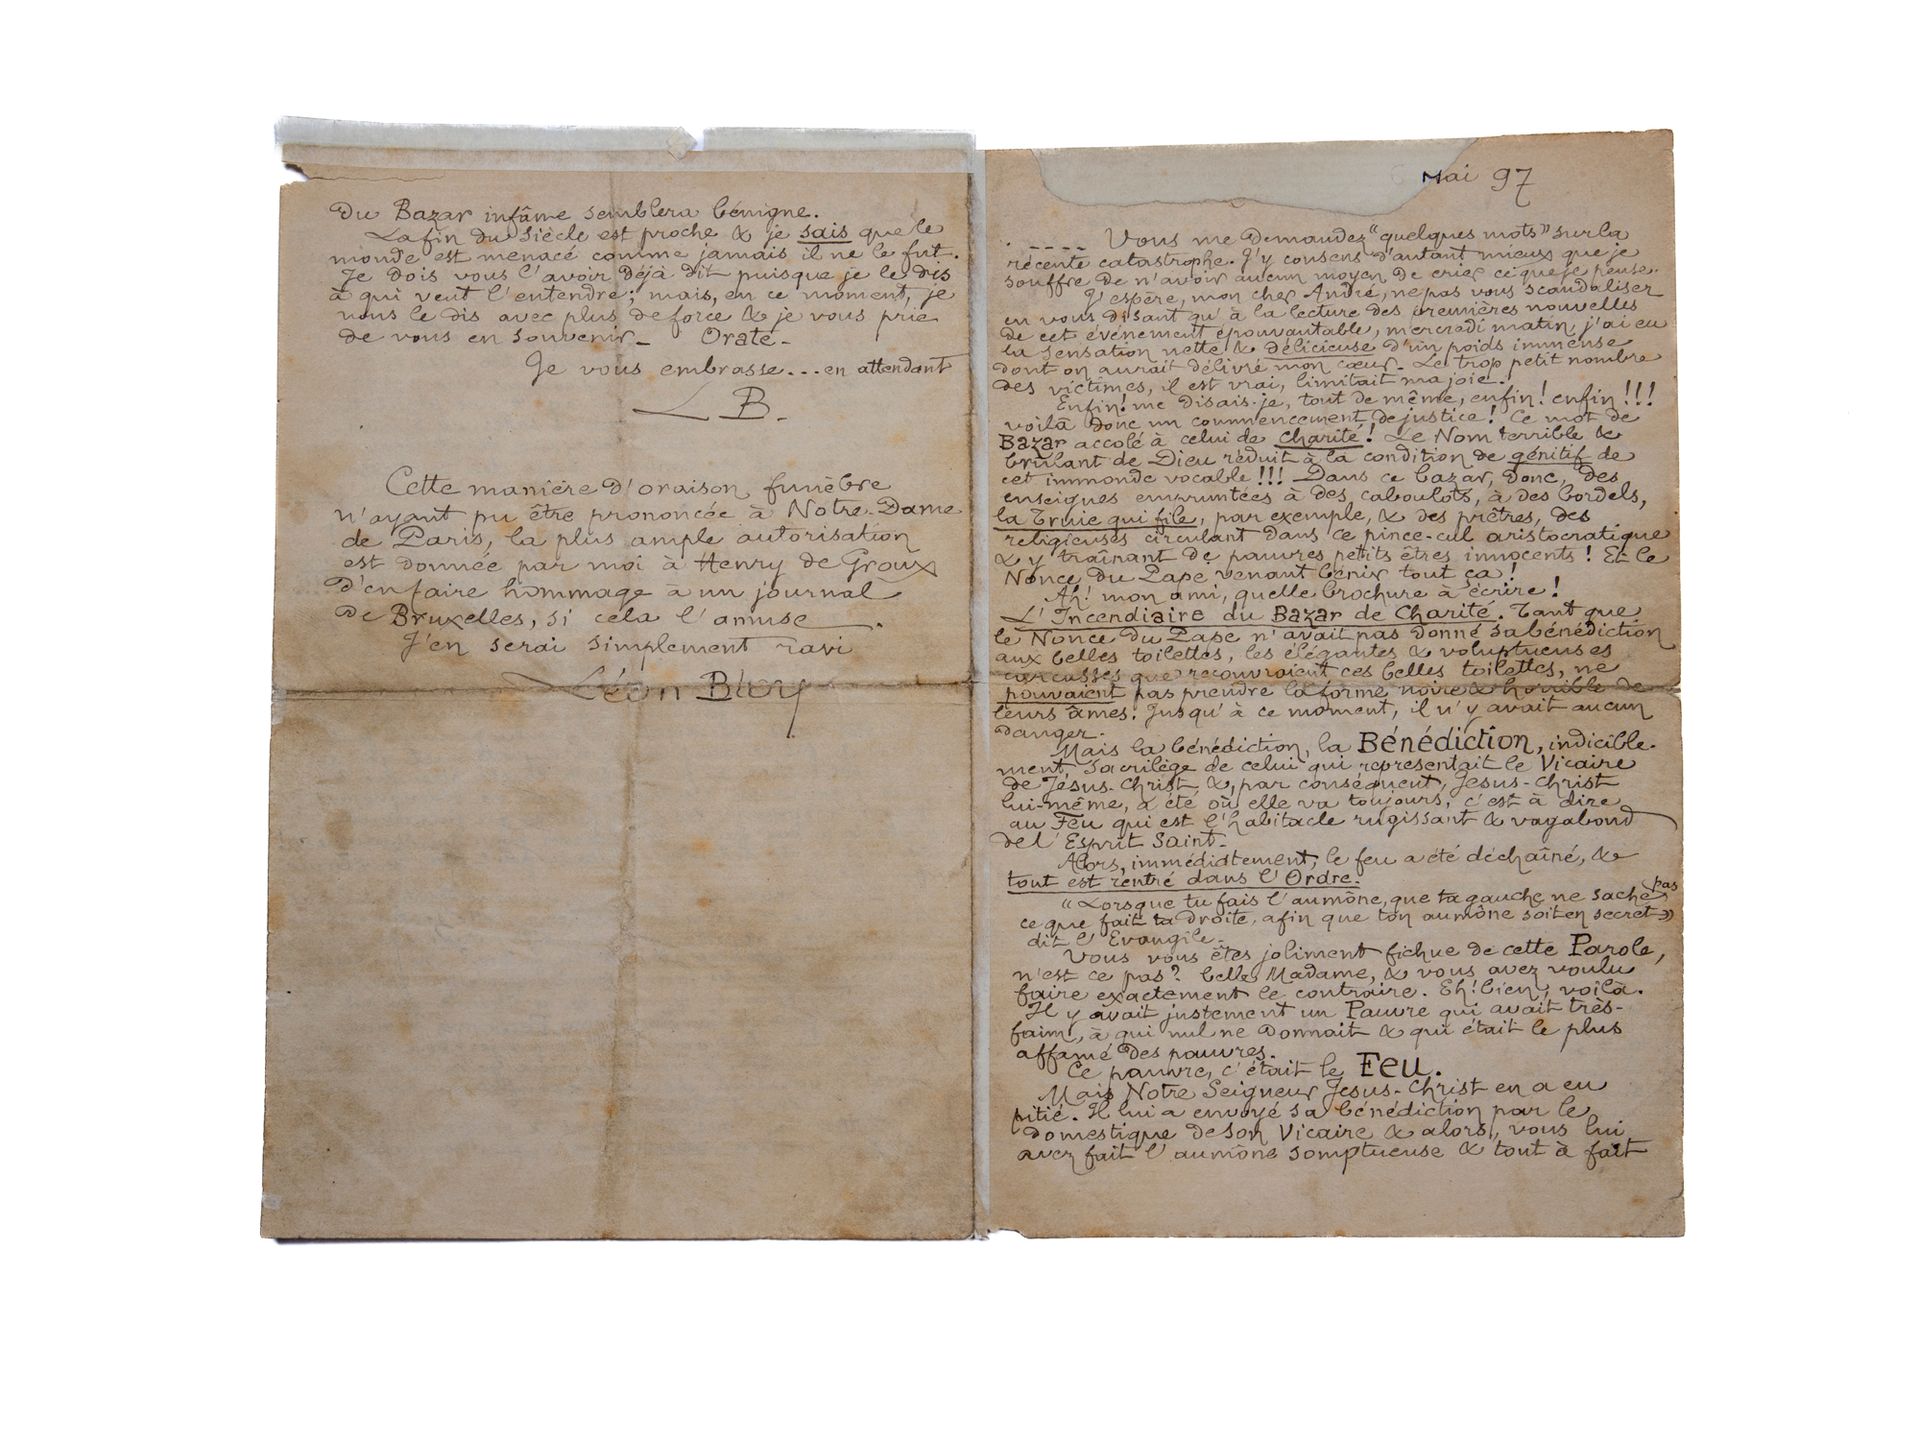 Du Bazar infâme semblera bénigne.
La fin du siècle est proche & je sais que le
monde est menacé comme jamais il ne le fut.
Je dois vous l'avoir déjà dit puisque je le dis
à qui veut l'entendre ; mais, en ce moment, je
vous le dis avec plus de force & je vous prie
de vous en souvenir_ Orate_
Je vous embrasse... en attendant
L B_
Cette manière d'oraison funèbre
n'ayant pu être prononcée à Notre-Dame
de Paris, la plus ample autorisation
est donnée par moi à Henry de Groux
d'en faire hommage à un journal
de Bruxelles, si cela l'amuse.
J'en serai simplement ravi
Léon Bloy
6 Mai 97
. ---- Vous me demandez "quelques mots" sur la
récente catastrophe. J'y consens d'autant mieux que je
souffre de n'avoir aucun moyen de crier ce que je pense.
J'espère, mon cher André, ne pas vous scandaliser
en vous disant qu'à la lecture des premières nouvelles
de cet événement épouvantable, mercredi matin, j'ai eu
la sensation nette & délicieuse d'un poids immense
dont on aurait délivré mon cœur_ Le trop petit nombre
des victimes, il est vrai, limitait ma joie.
Enfin! me disais-je, tout de même, enfin! enfin!!!
voilà donc un commencement de justice! Ce mot de
Bazar accolé à celui de Charité! Le Nom terrible &
brûlant de Dieu réduit à la condition de génitif de
cet immonde vocable!!! Dans ce bazar, donc, des
enseignes empruntées à des caboulots, à des bordels,
la Truie qui file, par exemple, & des prêtres, des
religieuses circulant dans ce pince-cul aristocratique
& y traînant de pauvres petits êtres innocents! Et le
Nonce du Pape venant bénir tout ça!
Ah! mon ami, quelle brochure à écrire!
L'Incendiaire du Bazar de Charité. Tant que
le Nonce du Pape n'avait pas donné sa bénédiction
aux belles toilettes, les élégantes & voluptueuses
carcasses que recouvraient ces belles toilettes, ne
pouvaient pas prendre la forme noire & horrible de
leurs âmes. Jusqu'à ce moment, il n'y avait aucun
danger.
Mais la bénédiction, la Bénédiction, indicible-
ment sacrilège de celui qui représentait le Vicaire
de Jésus-Christ &, par conséquent, Jésus-Christ
lui-même, a été où elle va toujours, c'est à dire
au Feu qui est l'habitacle rugissant & vagabond
de l'Esprit Saint_
Alors, immédiatement, le feu a été déchaîné, &
tout est rentré dans l'Ordre.
"Lorsque tu fais l'aumône, que ta gauche ne sache pas
ce que fait ta droite, afin que ton aumône soit en secret"
dit l'Evangile_
Vous vous êtes joliment fichue de cette Parole,
n'est ce pas? belle Madame, & vous avez voulu
faire exactement le contraire. Eh! bien, voilà.
Il y avait justement un Pauvre qui avait très-
faim, à qui nul ne donnait & qui était le plus
affamé des pauvres.
Ce pauvre, c'était le Feu.
Mais Notre Seigneur Jesus-Christ en a eu
pitié. Il lui a envoyé sa bénédiction par le
domestique de son Vicaire & alors, vous lui
avez fait l'aumône somptueuse & tout à fait